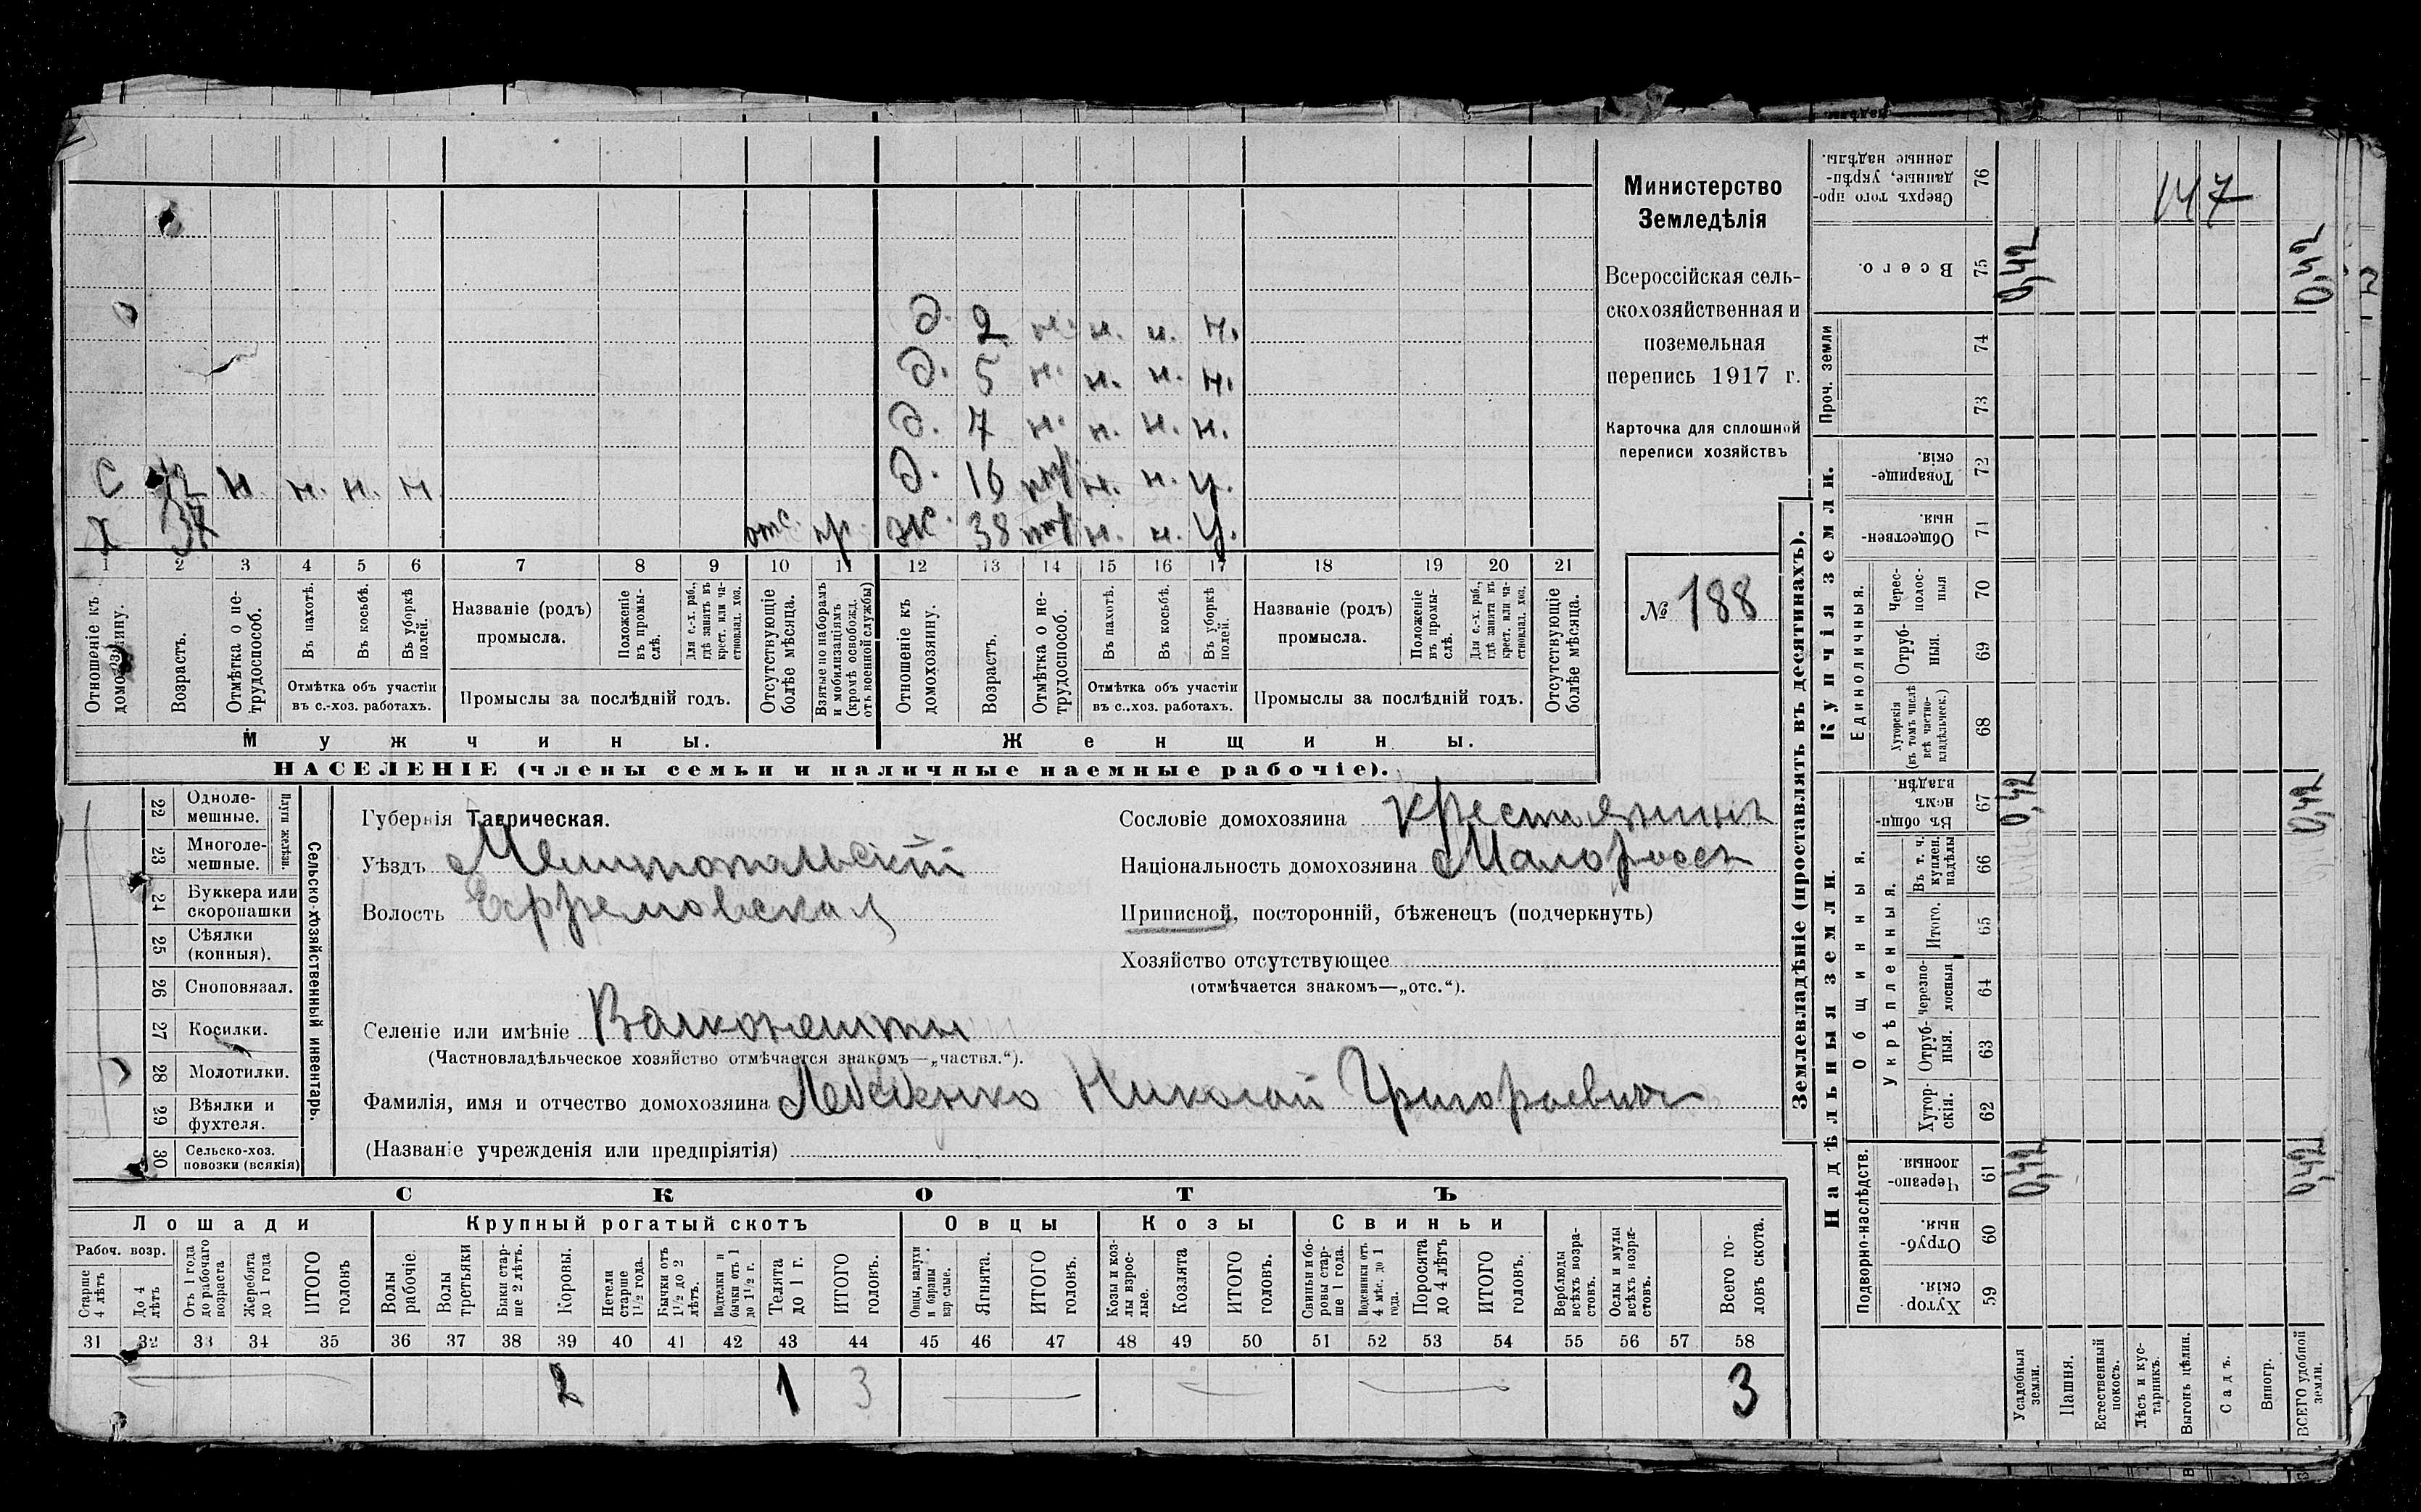 Министерство
Земледѣлія
Всероссійская сель-
скохозяйственная и
поземельная
перепись 1917 г.
Карточка для сплошной
переписи хозяйствъ
№ 188
147
д. 2 н. н. н. н.
д. 5 н. н. н. н.
д. 7 н. н. н. н.
С 12 н н. н. н д. 16 н. н. у.
Х 37 отс. пр. ж. 38 н. н. у.
1 2 3 4 5 6 7 8 9 10 11 12 13 14 15 16 17 18 19 20 21
Отношеніе къ домохозяину.
Возрастъ.
Отмѣтка о не-трудоспособ.
Въ пахотѣ.
Въ косьбѣ.
Въ уборкѣ полей.
Отмѣтка объ участіи
въ с.-хоз. работахъ.
Названіе (родъ)
промысла.
Положеніе въ промы-слѣ.
Для с.-х. раб., гдѣ занятъ въ крест. или ча-стновлад. хоз.
Промыслы за послѣдній годъ.
Отсутствующіе болѣе мѣсяца.
Взятые по наборамъ и мобилизаціямъ (кромѣ освобожд. отъ военной службы)
Отношеніе къ домохозяину.
Возрастъ.
Отмѣтка о не-трудоспособ.
Въ пахотѣ.
Въ косьбѣ.
Въ уборкѣ полей.
Отмѣтка объ участіи
въ с..хоз. работахъ.
Названіе (родъ)
промысла.
Положеніе въ промы-слѣ.
Для с.-х. раб., гдѣ занята въ крест. или ча-стновлад. хоз.
Промыслы за послѣдній годъ.
Отсутствующіе болѣе мѣсяца.
Мужчины. Женщины.
НАСЕЛЕНІЕ (члены семьи и наличные наемные рабочіе).
Сельско-хозяйственный инвентарь.
Плуги желѣзн.
22 Одноле-мешные.
23 Многоле-мешные.
24 Буккера или скоропашки
25 Сѣялки (конныя).
26 Сноповязал.
27 Косилки.
28 Молотилки.
29 Вѣялки и фухтеля.
30 Сельско-хоз. повозки (всякія)
Губернія Таврическая.
Уѣздъ Мелитопольскій
Волость Ефремовская
Селеніе или имѣніе Волконешты
(Частновладѣльческое хозяйство отмѣчается знакомъ—„частвл.“).
Фамилія, имя и отчество домохозяина Лебеденко Николай Григорьевич
(Названіе учрежденія или предпріятія)
Сословіе домохозяина крестьянинъ
Національность домохозяина Малороссъ
Приписной, посторонній, бѣженецъ (подчеркнуть)
Хозяйство отсутствующее
(отмѣчается знакомъ—„отс.“).
СКОТЪ
Лошади Крупный рогатый скотъ Овцы Козы Свиньи
Рабоч. возр.
Старше 4 лѣтъ
До 4 лѣтъ
Отъ 1 года до рабочаго возраста
Жеребята до 1 года
ИТОГО головъ
Волы рабочіе.
Волы третьяки
Быки стар-ше 2 лѣтъ.
Коровы.
Нетели старше 1½ года.
Бычки отъ 1½ до 2 лѣтъ.
Подтелки и бычки отъ 1 до 1½ г.
Телята до 1 г.
ИТОГО головъ.
Овцы, валухи и бараны взрослые.
Ягнята.
ИТОГО головъ.
Козы и коз-лы взрос-лые.
Козлята
ИТОГО головъ.
Свиньи и бо-ровы стар-ше 1 года.
Подсвинки отъ 4 мѣс. до 1 года.
Поросята до 4 лѣтъ
ИТОГО головъ.
Верблюды всѣхъ возра-стовъ.
Ослы и мулы всѣхъ возра-стовъ.
Всего го-ловъ скота.
31 32 33 34 35 36 37 38 39 40 41 42 43 44 45 46 47 48 49 50 51 52 53 54 55 56 57 58
2 1 3 3
Землевладѣніе (проставлять въ десятинахъ).
Надѣльныя земли.
Купчія земли.
Проч. земли
Подворно-наслѣдств.
Общинныя.
Укрѣпленныя.
Единоличныя.
Сверхъ того про-данные, укрѣп-ленные надѣлы. 76
Всего. 75 0,42 0,42
74
73
Товарище-скія. 72
Обществен-ныя. 71
Черес-полос-ныя 70
Отруб-ныя. 69
Хуторскія (въ томъ числѣ всѣ частно-владѣльческ.) 68
Въ общи-номъ владѣн. 67 0,42 0,42
Въ т. ч. куплен. надѣлы 66
Итого. 65
черезпо-лосныя 64
Отруб-ныя. 63
Хутор-скія. 62
Черезпо-лосныя. 61 0,42 0,42
Отруб-ныя. 60
Хутор-скія. 59
Усадебныя земли.
Пашня.
Естественный покосъ.
Лѣсъ и кус-тарникъ.
Выгонъ цѣлин.
Садъ.
Виногр.
ВСЕГО удобной земли.